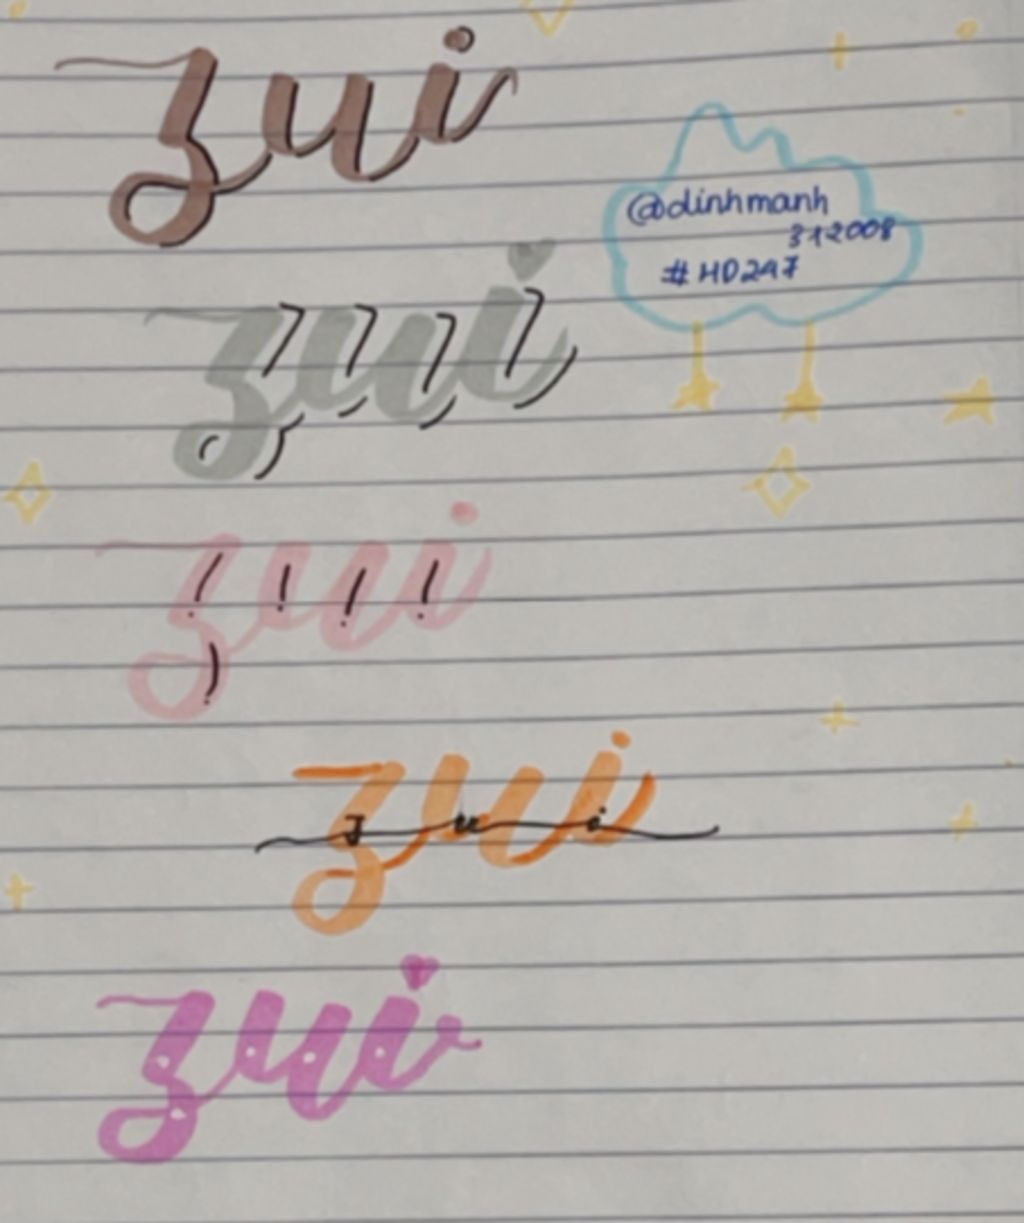 zui
@dinhmanh
312008
#HD247
zui
zui
zui
zui
zui